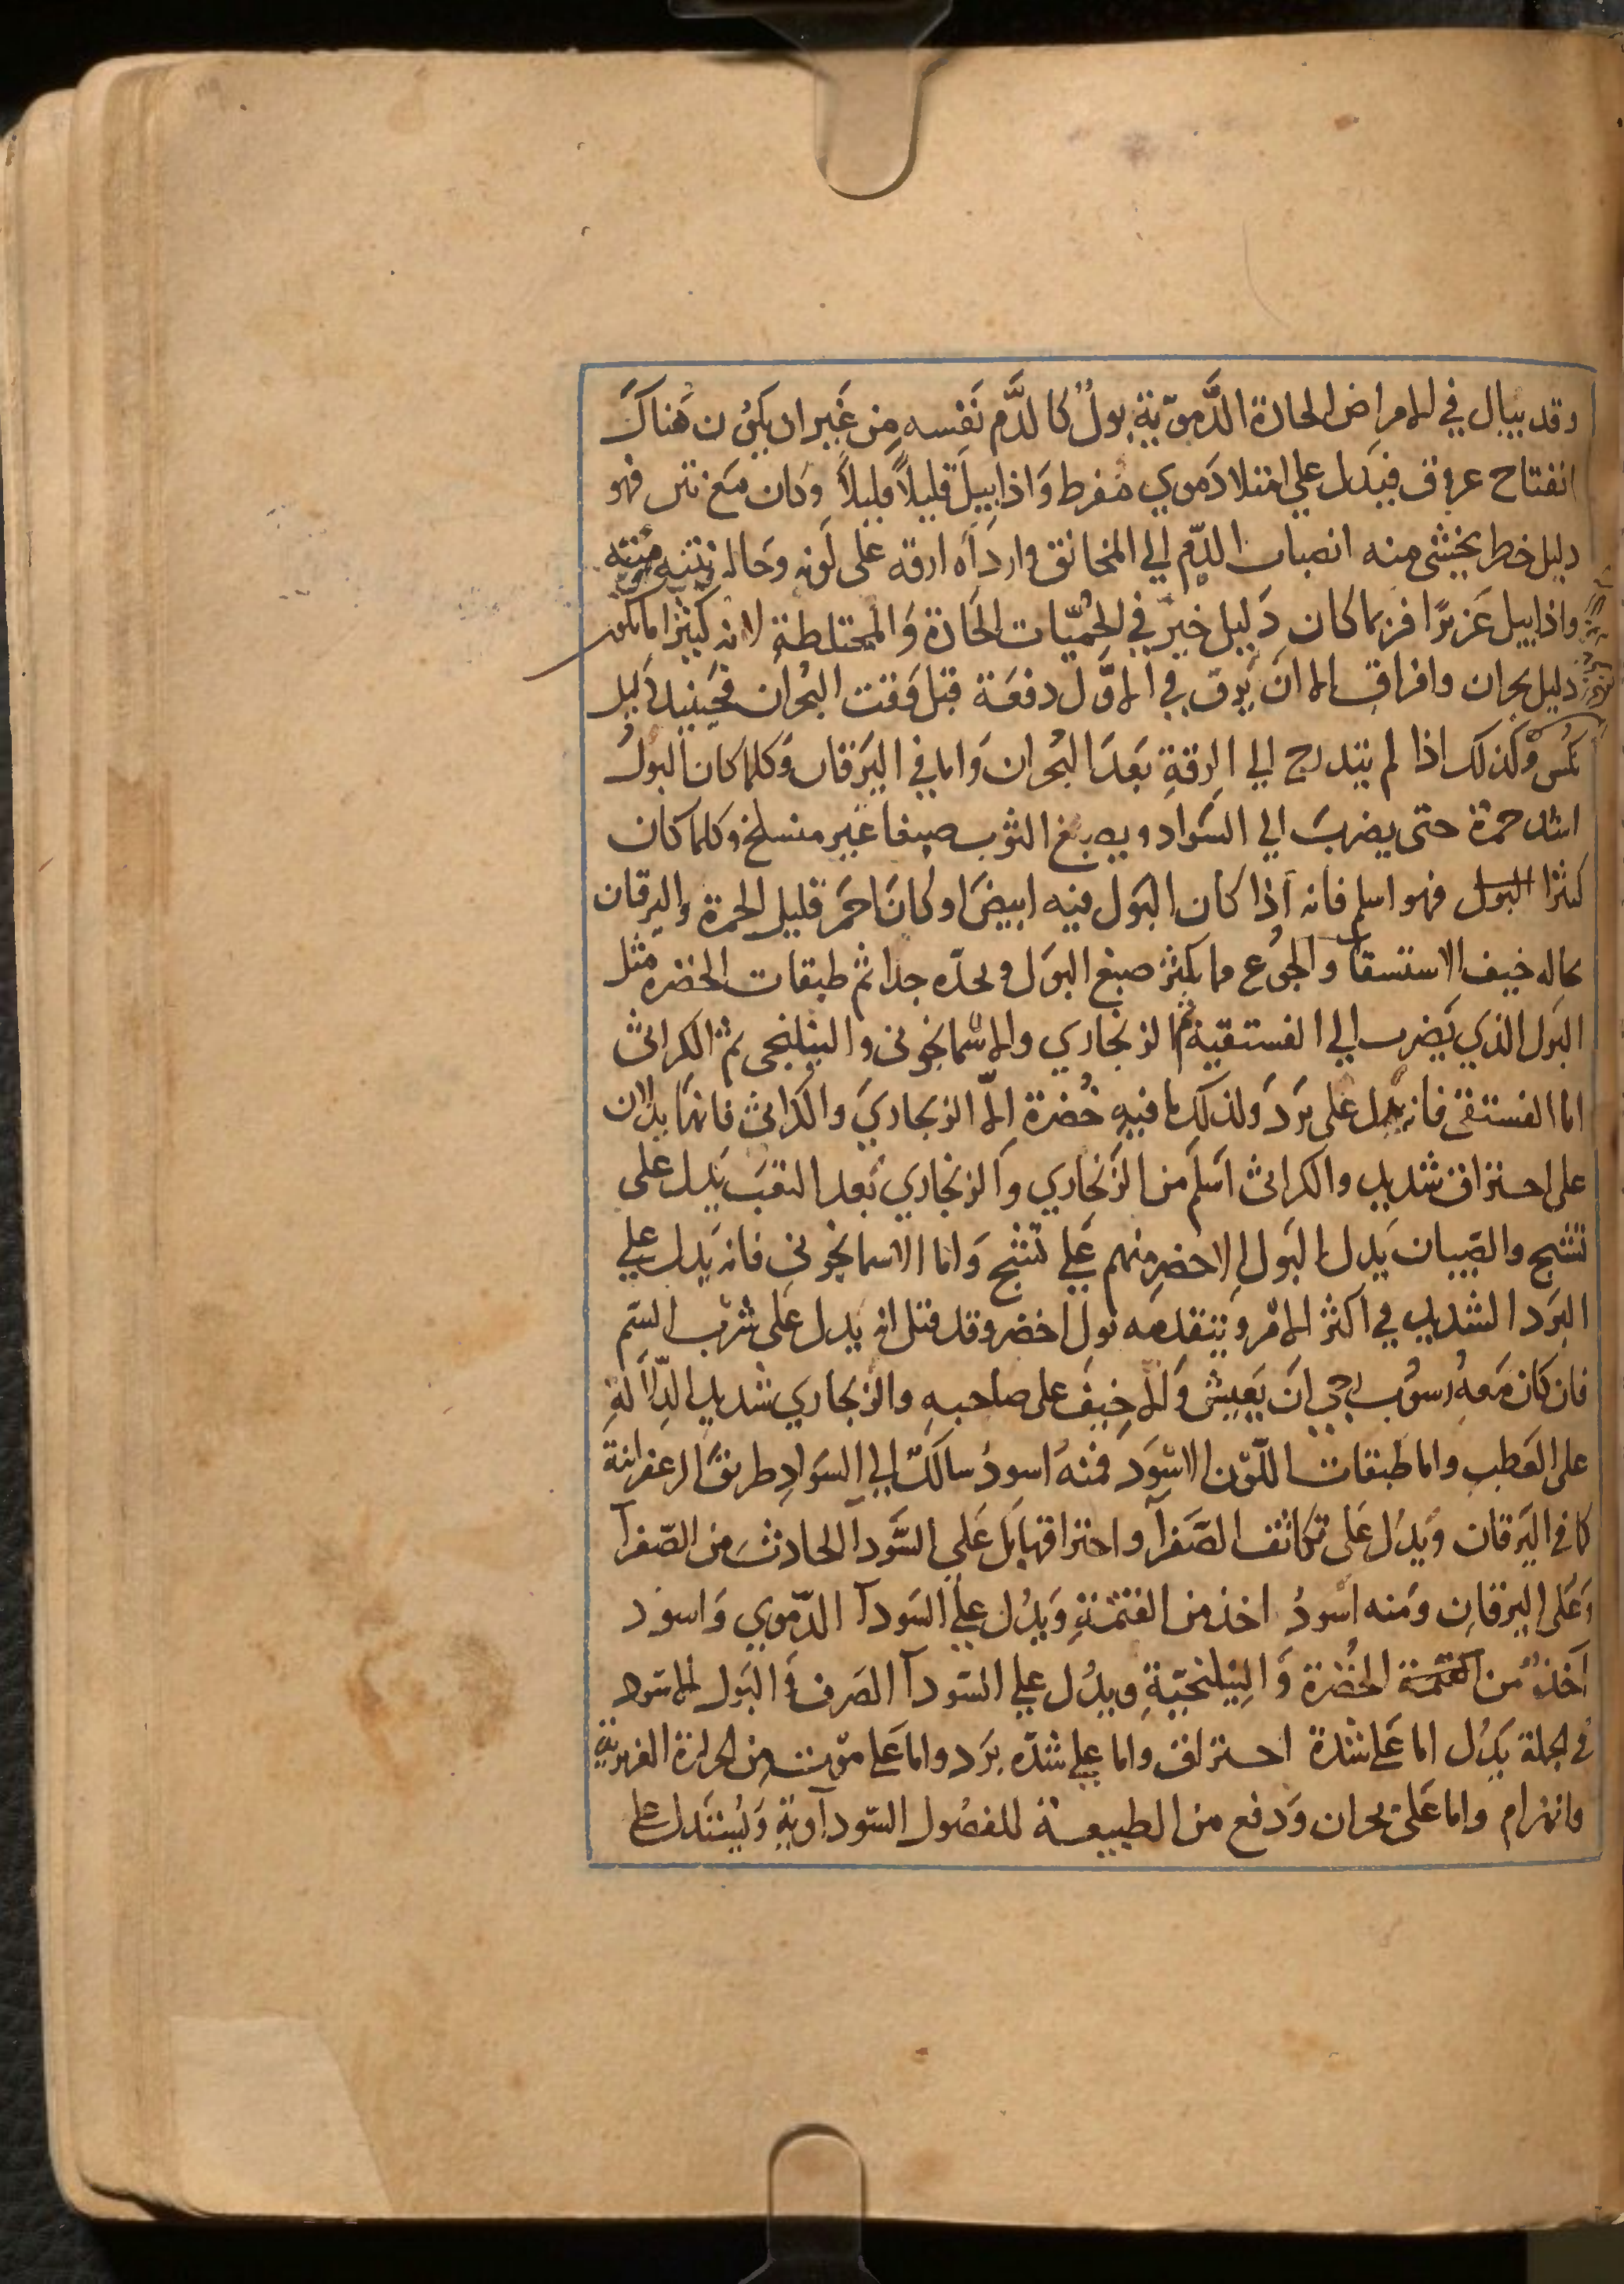 وقد يبال في الامراض الحادة الدَّمويّة بولٌ كالدَّم نَفسه مِن غَير ان يَكُون هَناكَ
انفتاح عروق فيَدل علي امتلا دَموي مُفرط وَاذا بِيلَ قليلاً قليلاً وكان مَع نتن فهو
دليل خطر يخشى منه انصباب الدّم الي المخانق واردَاه ارقه على لَونه وحَاله ونتنه
واذا بيل غَزيرًا فربما كان دَليل خير في الحُميّات الحَادة وَالمختلطة لانه كثيرًا ما يكون
دليل بحران وافراق الا ان يَرق في الاوَّل دفعَة قبل وَقت البُحرَان فحَينيذ دليل
نُكس وَكذلك اذا لم يتدرج الي الرقةِ بَعدَ البُحران وَاما في اليَرَقان وَكلما كان البَولُ
اشد حمرة حتى يضربَ الي السَواد ويصبغ الثوب صبغا غير منسلخ وكلما كان
كثرا البول فهو اسلم فانه اذا كان البَول فيه ابيضَ او كانَ احمَر قليل الحمرة واليرقان
بحاله خيف الاستسقا والجُوع مما يكثر صبغ البوَل ويحدّه جدا ثم طبقات الخضره مثل
البَول الذي يَضرب الي الفستقية ثم الزنجاري والاسمانجوني والنيلنجي ثم الكراثى
اما الفستقى فانه يدل على بَردَ ولذلك ما فيهِ خُضرة الّا الزنجاريَ والكراثى فانهمَا يدلان
على احتراق شديد والكراثى اسَلم من الزَنجاري وَالزنجاري بَعد التعَب يَدل على
تشنج والصبيان يَدل البَول الاخضرِ منهم عَلي تشنج وَاما الاسمانجوني فانه يَدل علي
البَرد الشديد في اكثر الامر ويتقدمَه بَول اخضر وقد قيل انه يَدل عَلى شرب السَم
فان كان مَعهُ رسُوب رجي ان يَعيش وَالا خِيفَ على صاحبهِ والزنجاري شديد الدِّلالَةِ
على العَطب واما طبقات اللّون الاسْوَد فمنهُ اسودُ سالكٌ الي السَوادِ طريقَ الزعفرانية
كما في اليَرقان وَيدُل عَلى تكاثف الصَّفرآ واحتراقها بَل عَلي السَّودآ الحادث من الصّفرآ
وَعَلى اليرقانِ ومَنه اسْودُ اخذ من القتمةِ وَيَدُل عليَ السَودآ الدّموي وَاسود
آخذٌ من القتمة الخُضرَة وَالنِيلنجيّةِ ويدُل علي السَودآ الصَرف وَالبَول الاسود
في الجملة يَدُل اما عَلي شدة احتراق واما علي شدّه بَرد واما عَلي موت من الحرارة الغريزية
وانهزام واما عَلىَ بحران وَدفع من الطبيعة للفضُول السّودآويةِ وَيُستدل علي